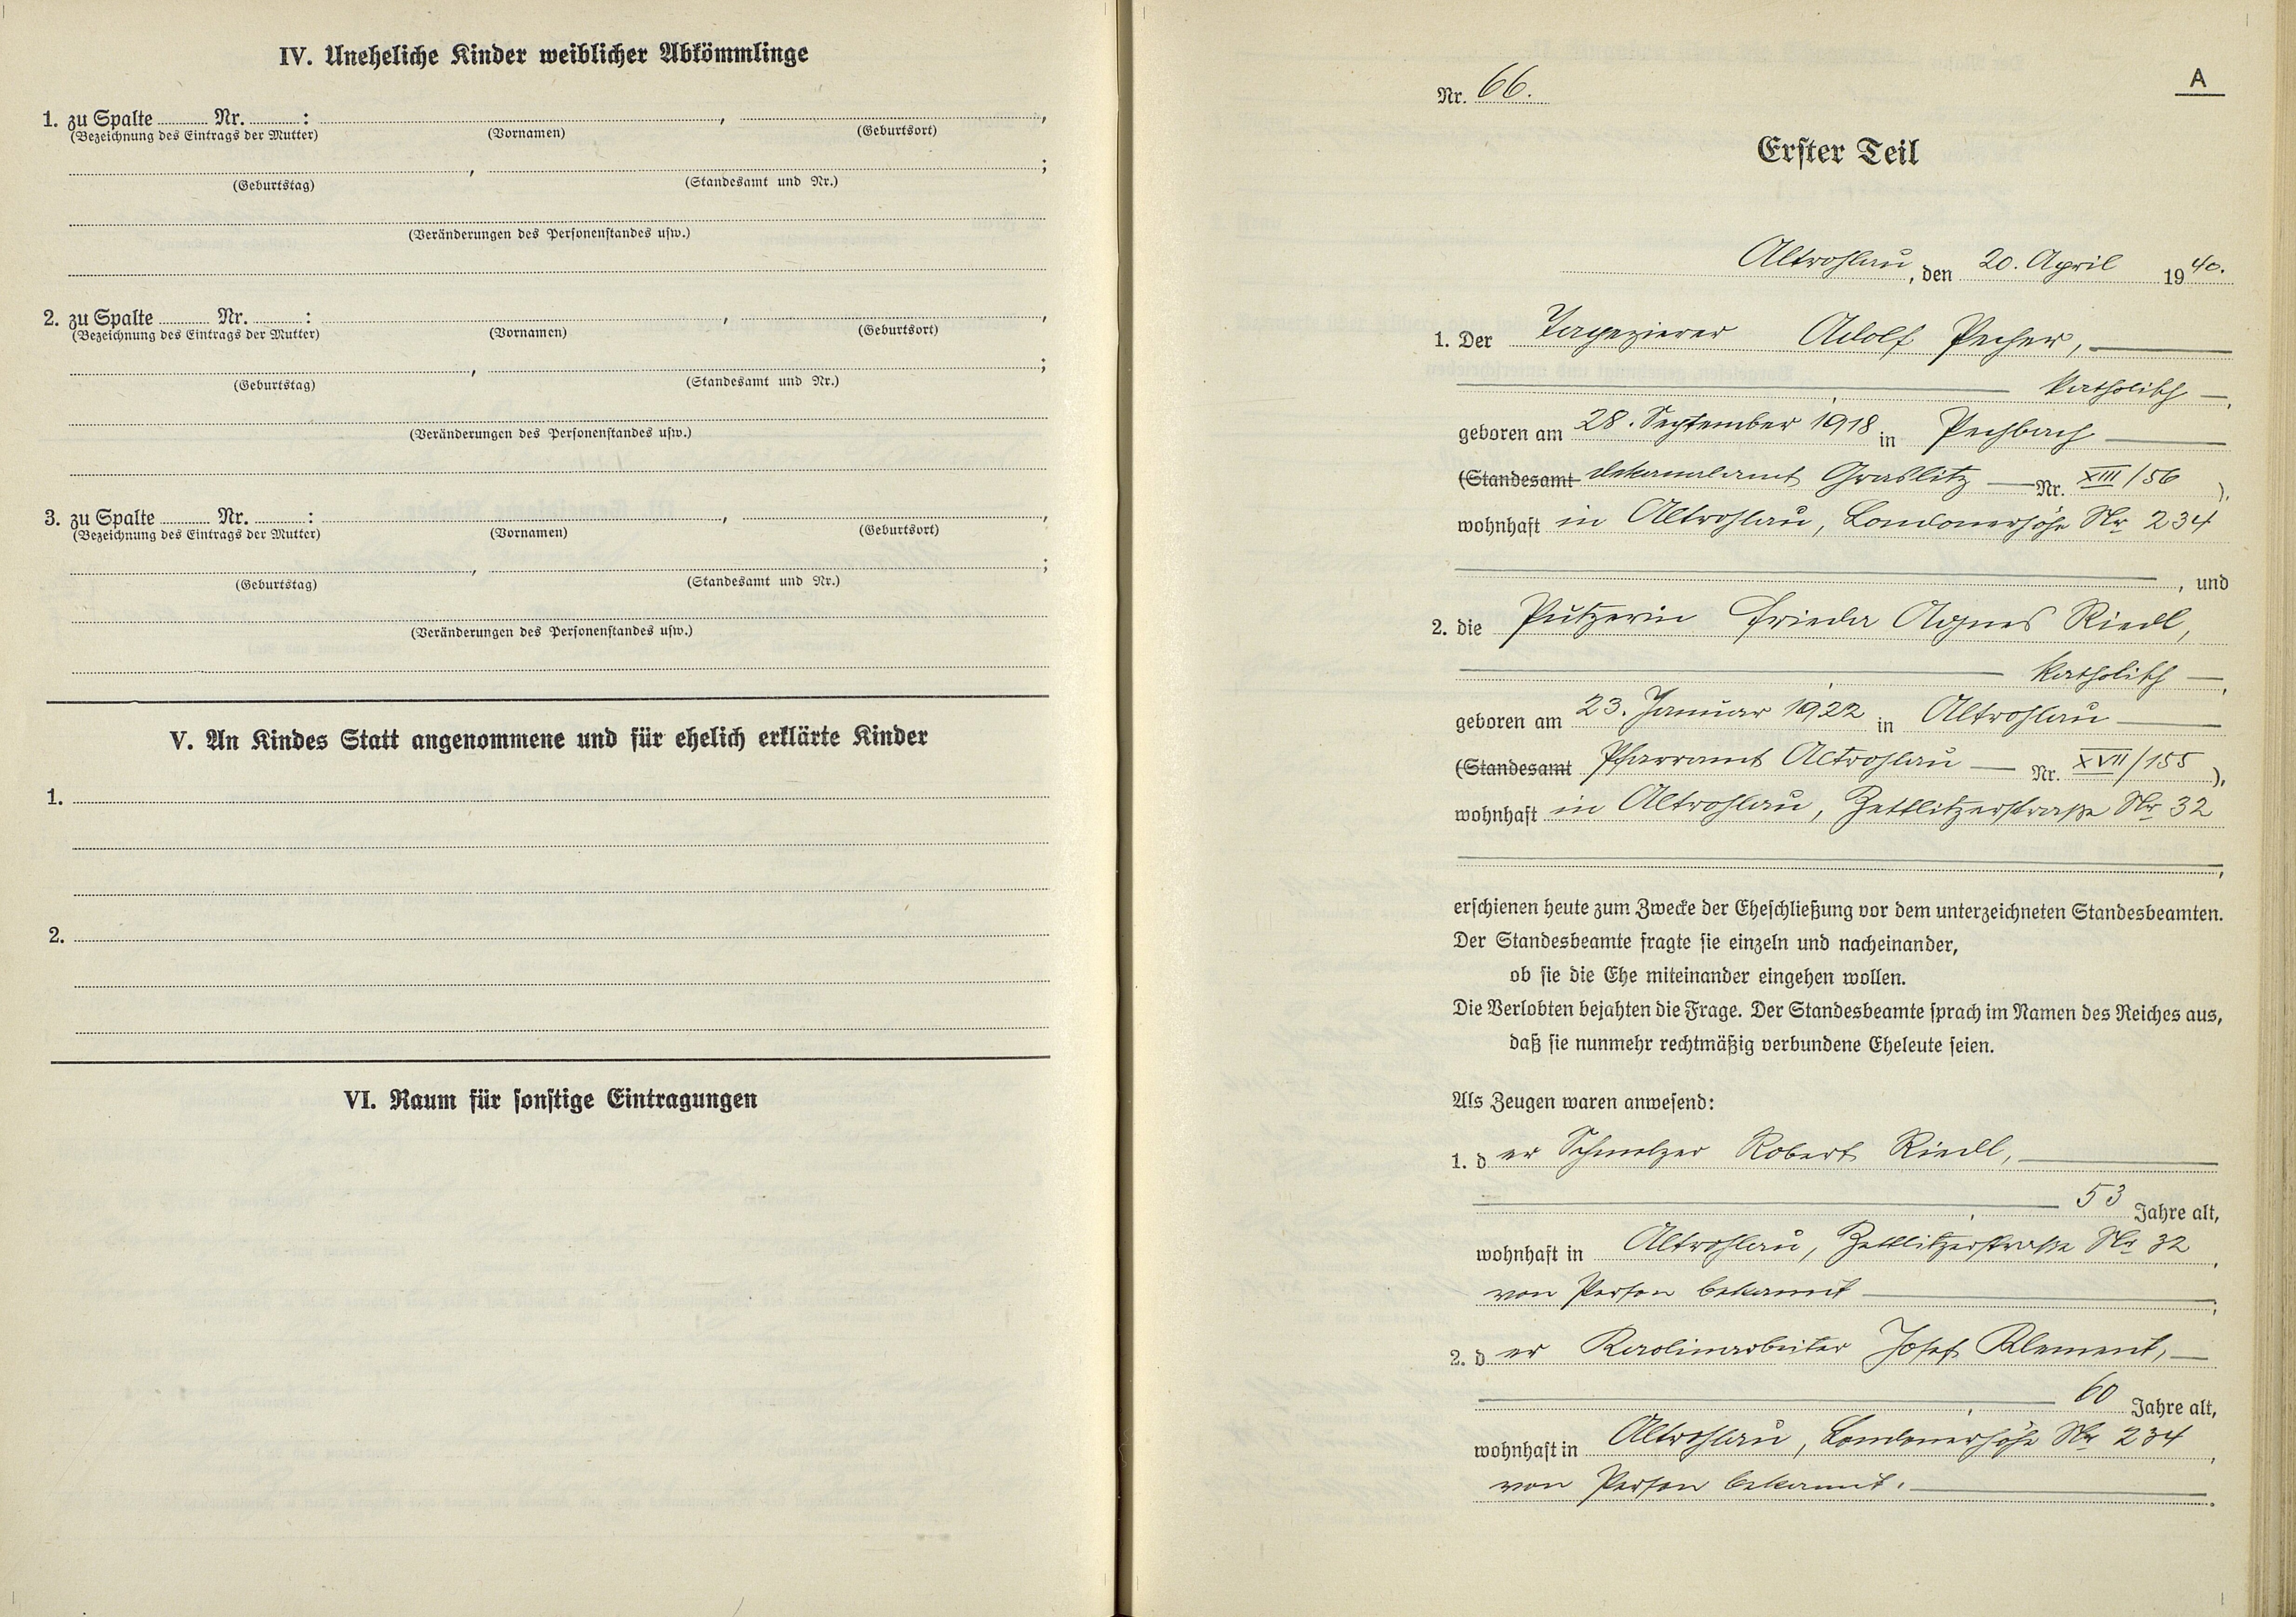 IV. Uneheliche Kinder weiblicher Abkömmlinge
1. zu Spalte ........ Nr. ........ : ........, ........,
(Bezeichnung des Eintrags der Mutter) (Vornamen) (Geburtsort)
........, ........;
(Geburtstag) (Standesamt und Nr.)
(Veränderungen des Personenstandes usw.)
2. zu Spalte ........ Nr. ........ : ........, ........,
(Bezeichnung des Eintrags der Mutter) (Vornamen) (Geburtsort)
........, ........;
(Geburtstag) (Standesamt und Nr.)
(Veränderungen des Personenstandes usw.)
3. zu Spalte ........ Nr. ........ : ........, ........,
(Bezeichnung des Eintrags der Mutter) (Vornamen) (Geburtsort)
........, ........;
(Geburtstag) (Standesamt und Nr.)
(Veränderungen des Personenstandes usw.)
V. An Kindes Statt angenommene und für ehelich erklärte Kinder
1.
2.
VI. Raum für sonstige Eintragungen
A
Nr. 66.
Erster Teil
Altrohlau, den 20. April 1940.
1. Der Tapezierer Adolf Pecher,
katholisch,
geboren am 28. September 1918 in Pechbach
(Standesamt Dekanalamt Graslitz Nr. XIII/56),
wohnhaft in Altrohlau, Londonerhöhe Nr 234
, und
2. die Putzerin Frieda Agnes Riedl,
katholisch,
geboren am 23. Januar 1922 in Altrohlau
(Standesamt Pfarramt Altrohlau Nr. XVII/155),
wohnhaft in Altrohlau, Zettlitzerstraße Nr 32
,
erschienen heute zum Zwecke der Eheschließung vor dem unterzeichneten Standesbeamten.
Der Standesbeamte fragte sie einzeln und nacheinander,
ob sie die Ehe miteinander eingehen wollen.
Die Verlobten bejahten die Frage. Der Standesbeamte sprach im Namen des Reiches aus,
daß sie nunmehr rechtmäßig verbundene Eheleute seien.
Als Zeugen waren anwesend:
1. der Schmelzer Robert Riedl,
53 Jahre alt,
wohnhaft in Altrohlau, Zettlitzerstraße Nr 32,
von Person bekannt;
2. der Kaolinarbeiter Josef Klement,
60 Jahre alt,
wohnhaft in Altrohlau, Londonerhöhe Nr 234,
von Person bekannt.